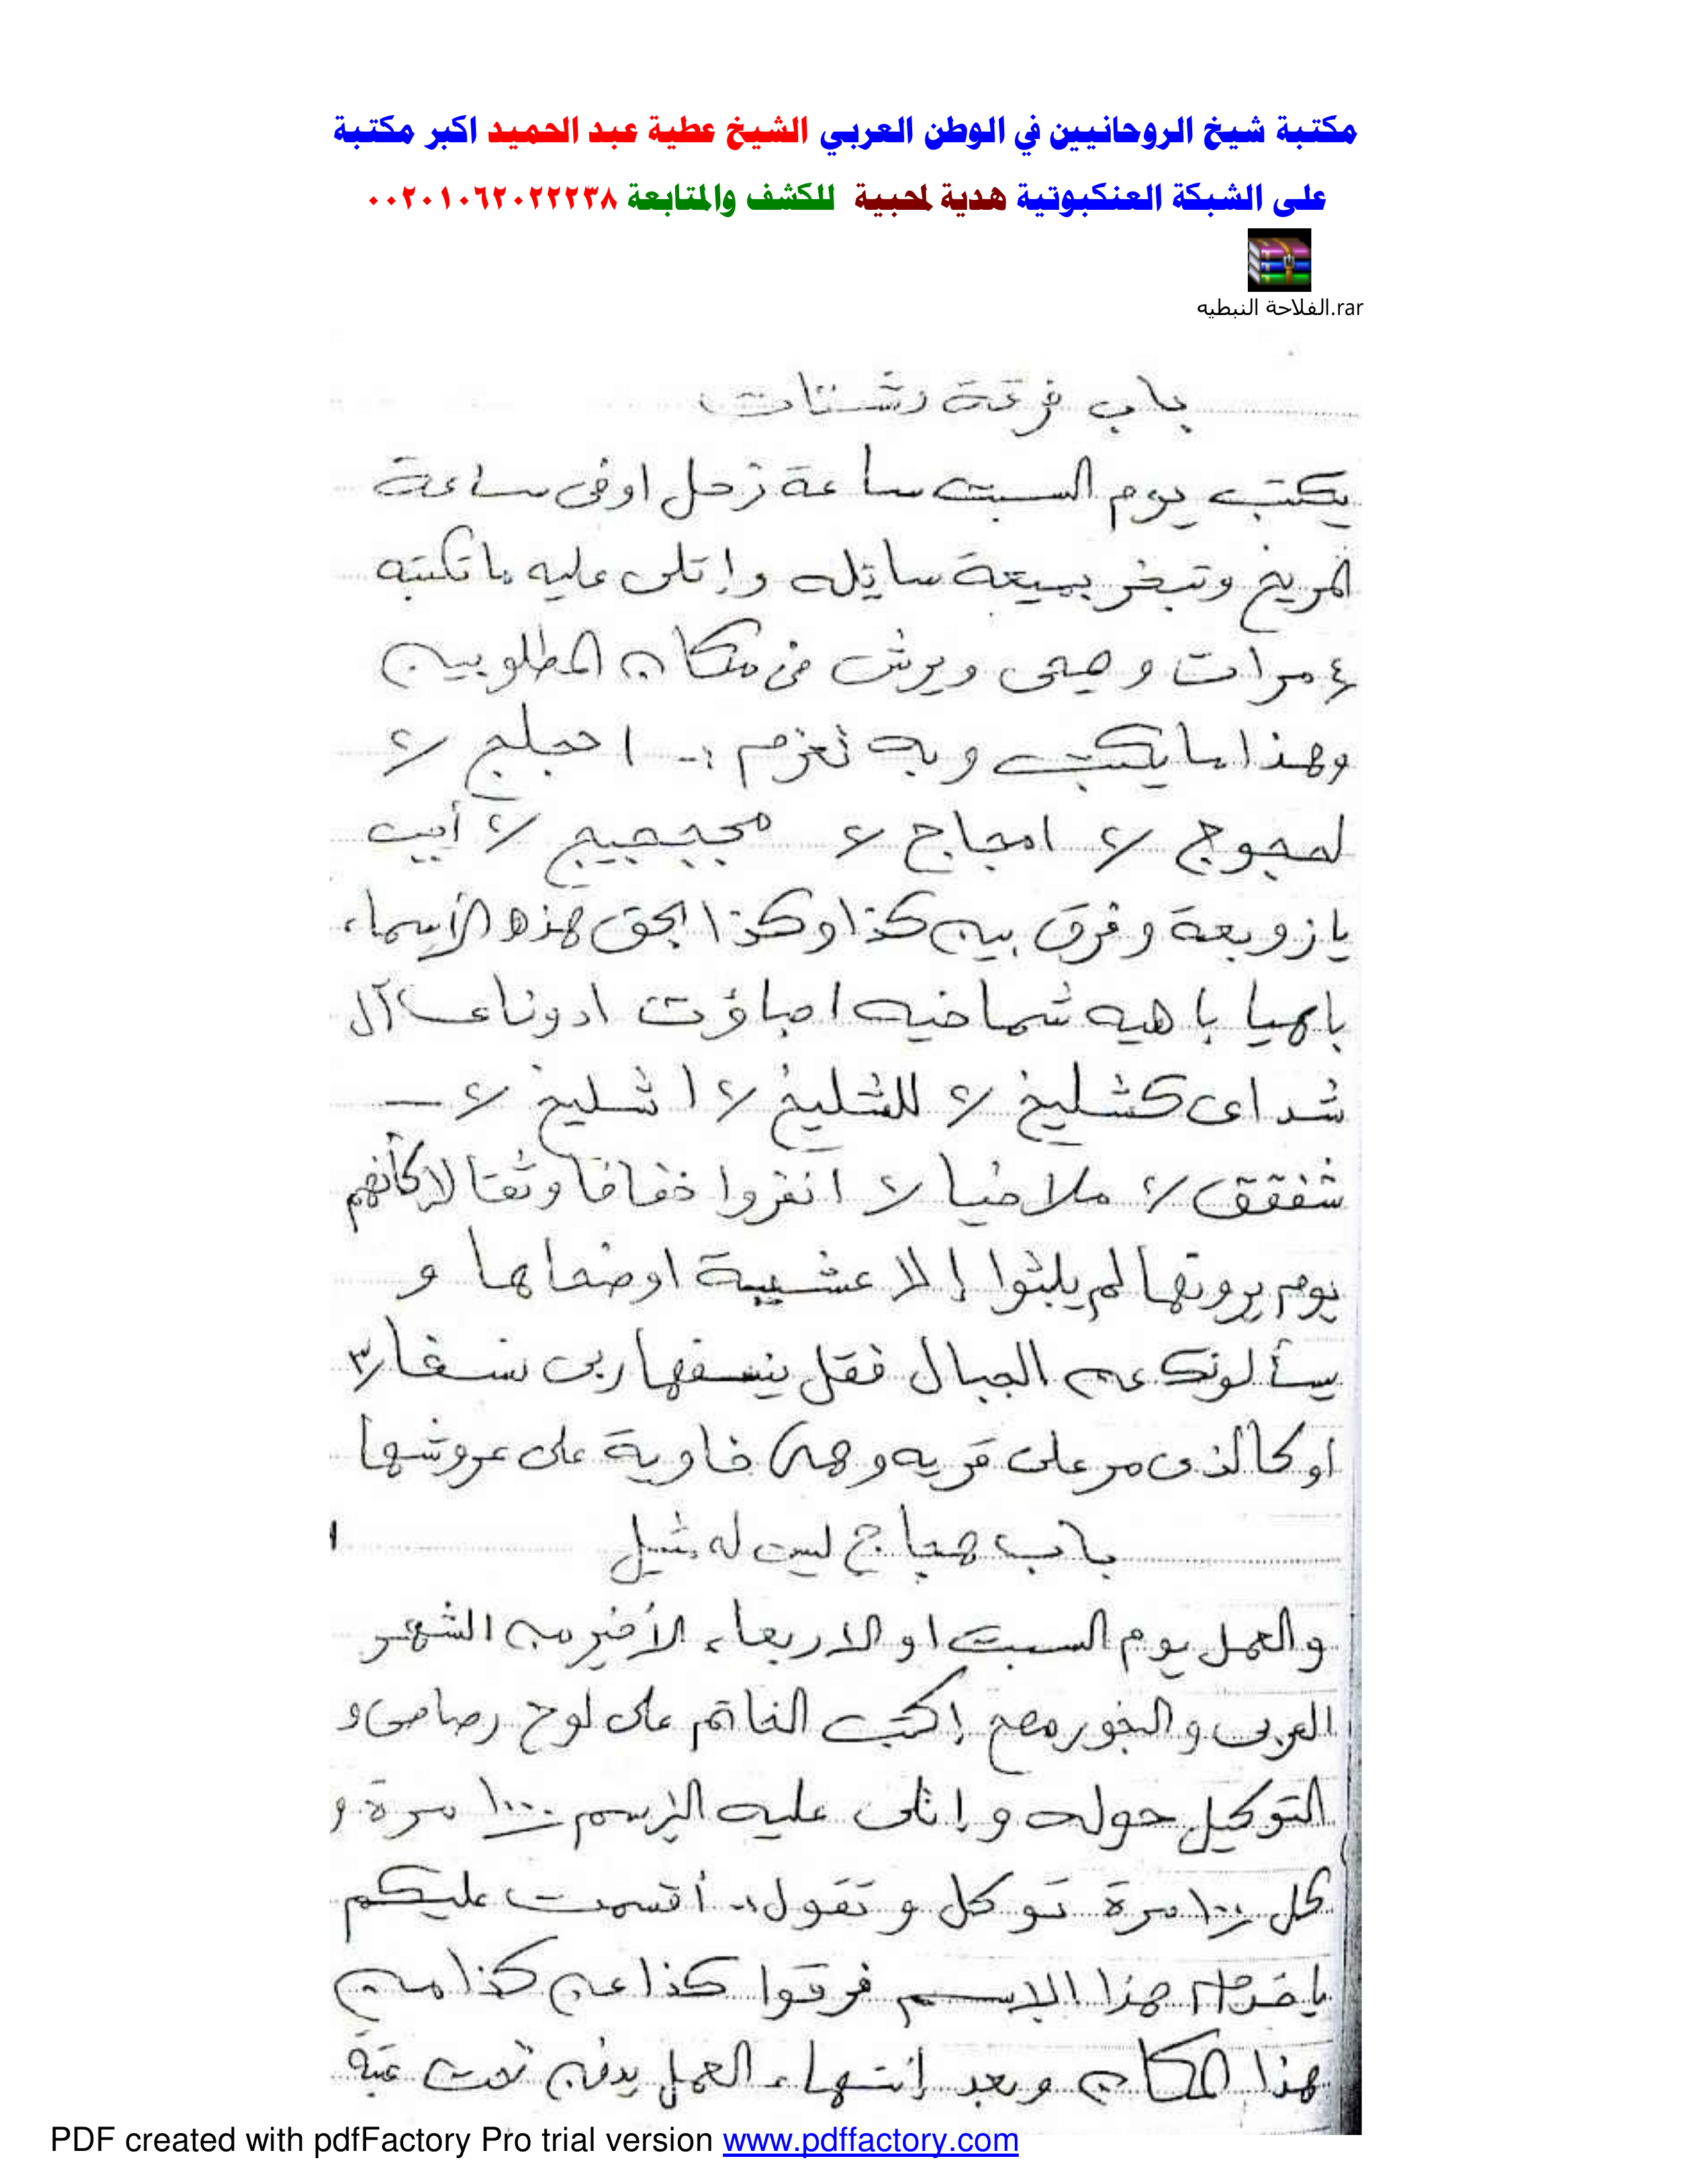 مكتبة شيخ الروحانيين في الوطن العربي الشيخ عطية عبد الحميد اكبر مكتبة
على الشبكة العنكبوتية هدية لمحبية للكشف والمتابعة ٠٠٢٠١٠٦٢٠٢٢٢٣٨
الفلاحة النبطيه.rar
باب فرقة وشتات
يكتب يوم السبت ساعة زحل اوفى ساعة
المريخ وتبخر بميعة سايله وإتلى عليه ماتكتبه
٤ مرات ويمحى ويرش فى مكان المطلوبين
وهذا مايكتب وبه تعزم :- احجلج ٢
لحجوج ٢ امجاج ٢ مججبيج ٢ أجب
يازوبعة وفرق بين كذا وكذا بحق هذه الأسماء
باهيا باهيه شماخيه اصباؤت ادوناى آل
شداى كشليخ ٢ للشليخ ٢ اشليخ ٢ ــ
شفقق ٢ ملاخيا ٢ انفروا خفافا وثقالا كأنهم
يوم يرونها لم يلبثوا إلا عشيية اوضحاها و
يسألونك عن الجبال فقل ينسفها ربى نسفا ٣
او كالذى مر على قريه وهى خاوية على عروشها
باب هجاج ليس له مثيل
والعمل يوم السبت او الاربعاء الأخير من الشهر
العربى والبخور إكتب الخاتم على لوح رصاص و
التوكيل حوله وإتلى عليه الإسم ١٠٠٠ مرة و
كل ١٠٠ مرة توكل وتقول :- أقسمت عليكم
ياخدام هذا الاسم فرقوا كذا عن كذا من
هذا المكان وبعد إنتهاء العمل يدفن تحت عتبة
PDF created with pdfFactory Pro trial version www.pdffactory.com